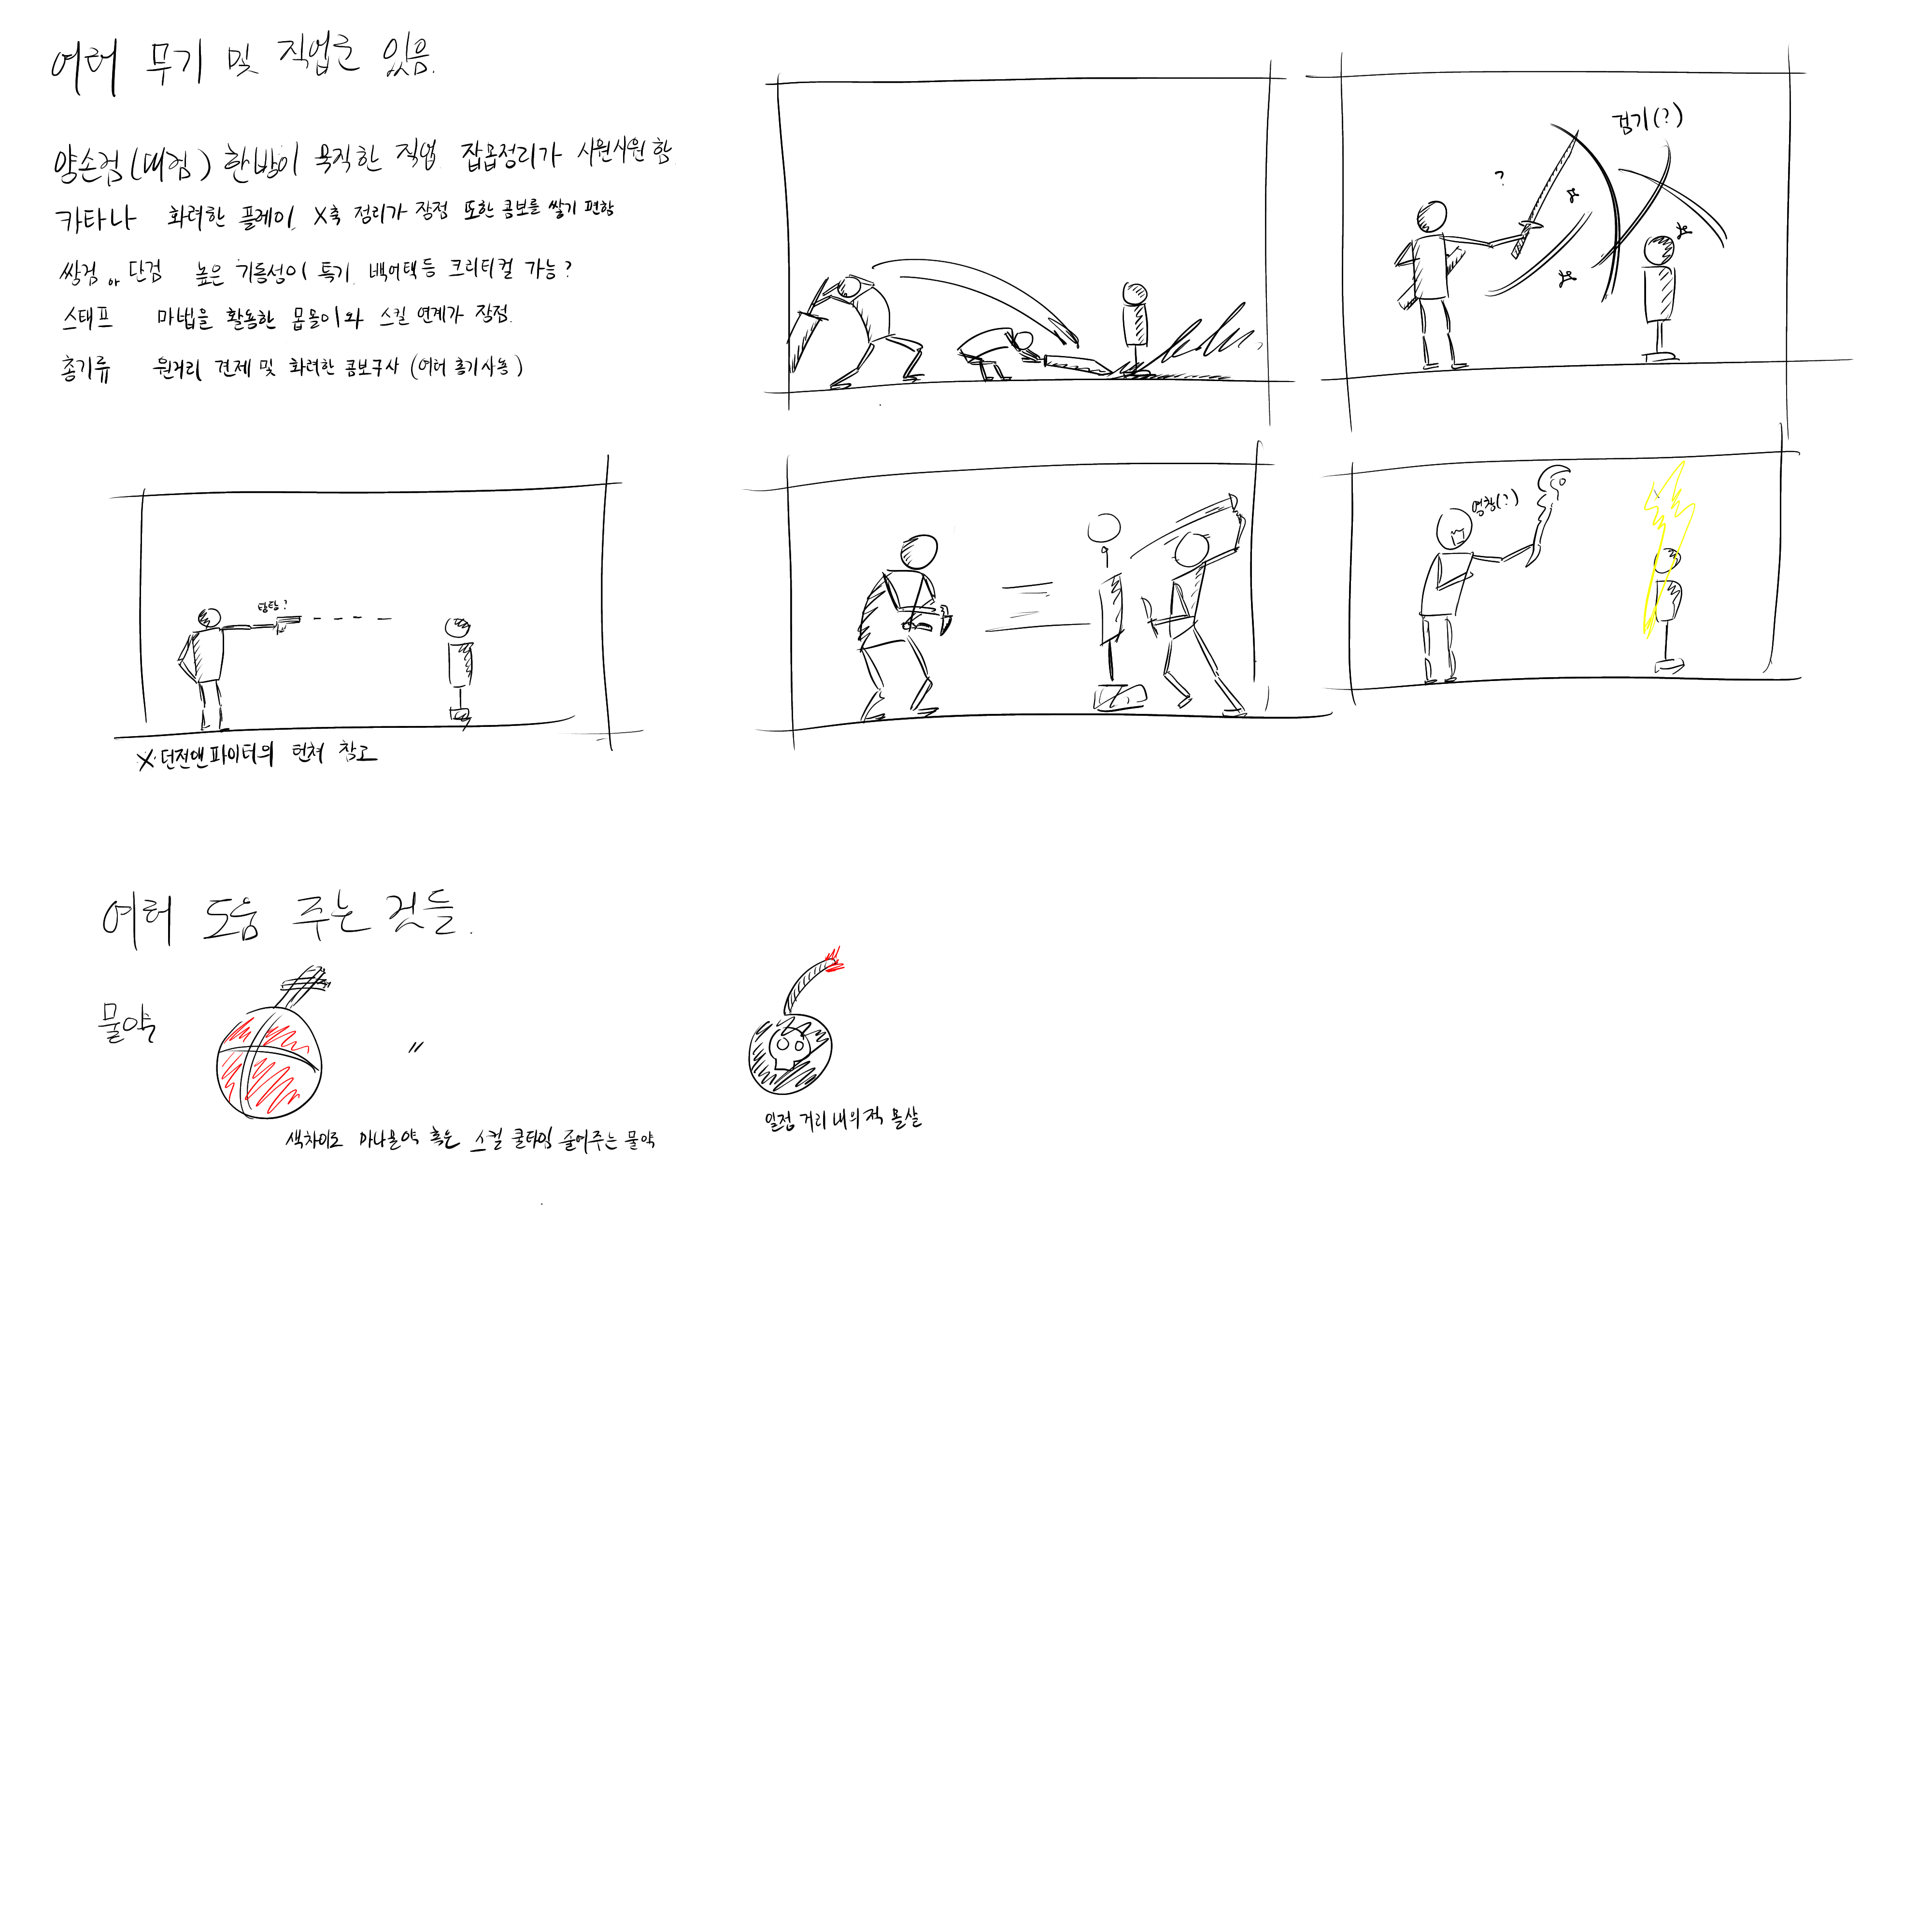 여러 무기 및 직업군 있음.
양손검(대검) 한방이 묵직한 직업 잡몹정리가 시원시원함
카타나 화려한 플레이, X축 정리가 장점 또한 콤보를 쌓기 편함
쌍검 or 단검 높은 기동성이 특기. 백어택 등 크리티컬 가능?
스태프 마법을 활용한 몹몰이와 스킬 연계가 장점.
총기류 원거리 견제 및 화려한 콤보구사 (여러 총기사용)
?
검기(?)
탕탕?
영창(?)
※던전앤파이터의 런쳐 참고
여러 도움 주는 것들.
물약
〃
색차이로 마나물약 혹은 스킬 쿨타임 줄여주는 물약
일정 거리 내의 적 몰살